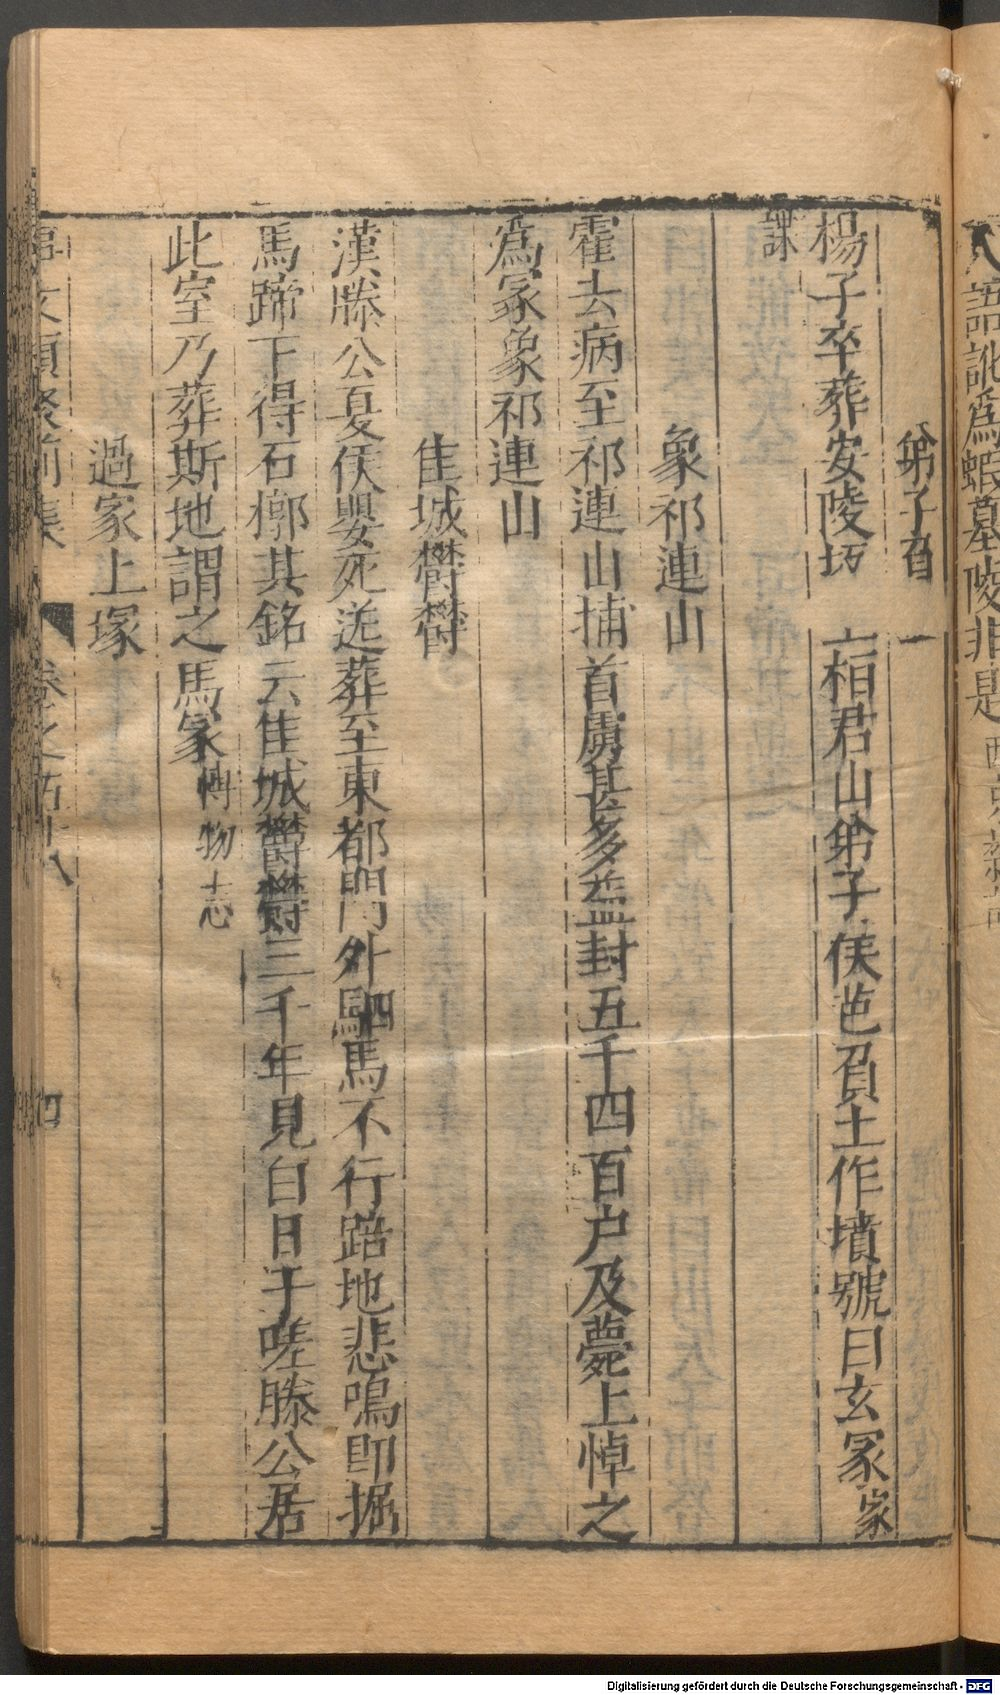 人語訛爲蝦蟇陵非是
弟子負土
楊子卒葬安陵坂上桓君山弟子侯芭負土作墳號曰玄冢家
諜
象祁連山
霍去病至祁連山捕首虜甚多益封五千四百户及薨上悼之
爲冢象祁連山
隹城欝欝
漢滕公夏侯嬰死送葬至東都門外駟馬不行踣地悲鳴即掘
馬蹄下得石槨其銘云隹城欝欝三千年見白日于嗟滕公居
此室乃葬斯地謂之馬冢 博物志
過家上塚
事文類聚前集 卷之五十八 四
Digitalisierung gefördert durch die Deutsche Forschungsgemeinschaft - DFG